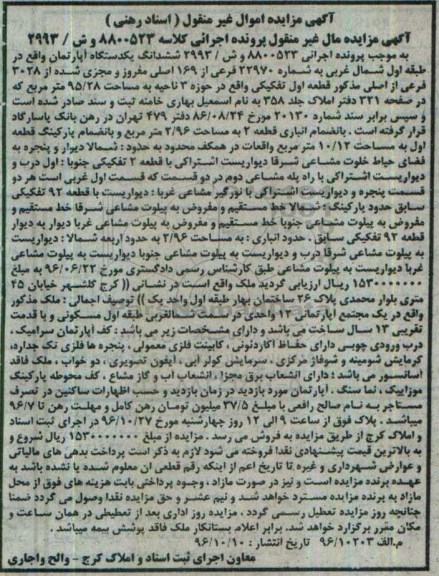 آگهی مزایده اموال غیر منقول ( اسناد رهنی )
آگهی مزایده مال غیر منقول پرونده اجرائی کلاسه ۸۸۰۰۵۲۳ و ش / ۲۹۹۳
به موجب پرونده اجرائی ۸۸۰۰۵۲۳ و ش / ۲۹۹۳ ششدانگ یکدستگاه آپارتمان واقع در
طبقه اول شمال غربی به شماره ۲۲۹۷۰ فرعی از ۱۶۹ اصلی مفروز و مجزی شده از ۳۰۲۸
فرعی از اصلی مذکور قطعه اول تفکیکی واقع در حوزه ۳ ناحیه به مساحت ۹۵/۲۸ متر مربع که
در صفحه ۳۲۱ دفتر املاک جلد ۳۵۸ به نام اسمعیل بهاری خامنه ثبت و سند صادر شده است
و سپس برابر سند شماره ۲۰۱۳۰ مورخ ۸۶/۰۸/۲۴ دفتر ۴۷۹ تهران در رهن بانک پاسارگاد
قرار گرفته است . بانضمام انباری قطعه ۲ به مساحت ۲/۹۶ متر مربع و بانضمام پارکینگ قطعه
اول به مساحت ۱۰/۱۲ متر مربع واقعات در همکف محدود به حدود : شمالا دیوار و پنجره به
فضای حیاط خلوت مشاعی شرقا دیواریست اشتراکی با قطعه ۲ تفکیکی جنوبا : اول درب و
دیواریست اشتراکی با راه پله مشاعی دوم در دو قسمت که قسمت اول غربی است هر دو
قسمت پنجره و دیواریست اشتراکی با نورگیر مشاعی غربا : دیواریست با قطعه ۹۲ تفکیکی
سابق حدود پارکینگ : شمالا خط مستقیم و مفروض به پیلوت مشاعی شرقا خط مستقیم و
مفروض به پیلوت مشاعی جنوبا خط مستقیم و مفروض به پیلوت مشاعی غربا دیوار به دیوار
قطعه ۹۲ تفکیکی سابق . حدود انباری : به مساحت ۲/۹۶ به حدود اربعه شمالا : دیواریست
به پیلوت مشاعی شرقا درب و دیواریست به پیلوت مشاعی جنوبا دیواریست به پیلوت مشاعی
غربا دیواریست به پیلوت مشاعی طبق کارشناس رسمی دادگستری مورخ ۹۶/۰۶/۲۲ به مبلغ
۱۵۳۰۰۰۰۰۰۰ ریال ارزیابی گردید ملک واقع است در نشانی (( کرج گلشهر خیابان ۴۵
متری بلوار محمدی پلاک ۲۶ ساختمان بهار طبقه اول واحد یک )) توصیف اجمالی : ملک مذکور
واقع در یک مجتمع آپارتمانی ۱۲ واحدی در سمت شمالغربی طبقه اول مسکونی و با قدمت
تقریبی ۱۳ سال ساخت می باشد و دارای مشخصات زیر می باشد : کف آپارتمان سرامیک ،
درب ورودی چوبی دارای حفاظ آکاردئونی ، کابینت فلزی معمولی ، پنجره ها فلزی تک جداره،
گرمایش شومینه و شوفاژ مرکزی ، سرمایش کولر آبی ، آیفون تصویری ، دو خواب ، ملک فاقد
آسانسور می باشد ؛ دارای انشعاب برق مجزا ، انشعاب آب و گاز مشاع ، کف محوطه پارکینگ
موزاییک ، نما سنگ . آپارتمان مورد بازدید در زمان بازدید و حسب اظهارات ساکنین در تصرف
مستاجر به نام صالح رافعی با مبلغ ۳۷/۵ میلیون تومان رهن کامل و مهلت رهن تا ۹۶/۷
میباشد . پلاک فوق از ساعت ۹ الی ۱۲ روز چهارشنبه مورخ ۹۶/۱۰/۲۷ در اجرای ثبت اسناد
و املاک کرج از طریق مزایده به فروش می رسد . مزایده از مبلغ ۱۵۳۰۰۰۰۰۰۰ ریال شروع و
به بالاترین قیمت پیشنهادی نقدا فروخته می شود لازم به ذکر است پرداخت بدهی های مالیاتی
و عوارض شهرداری و غیره تا تاریخ اعم از اینکه رقم قطعی آن معلوم شده یا نشده باشد به
عهده برنده مزایده است و نیز در صورت مازاد ، وجوه پرداختی بابت هزینه های فوق از محل
مازاد به برنده مزایده مسترد خواهد شد و نیم عشر و حق مزایده نقدا وصول می گردد ضمنا
چنانچه روز مزایده تعطیل رسمی گردد ، مزایده روز اداری بعد از تعطیلی در همان ساعت و
مکان مقرر برگزار خواهد شد. برابر اعلام بستانکار ملک فاقد پوشش بیمه میباشد .
م.الف ۹۶/۱۰۲۰۳ تاریخ انتشار : ۹۶/۱۰/۱۰
معاون اجرای ثبت اسناد و املاک کرج – والح واجاری